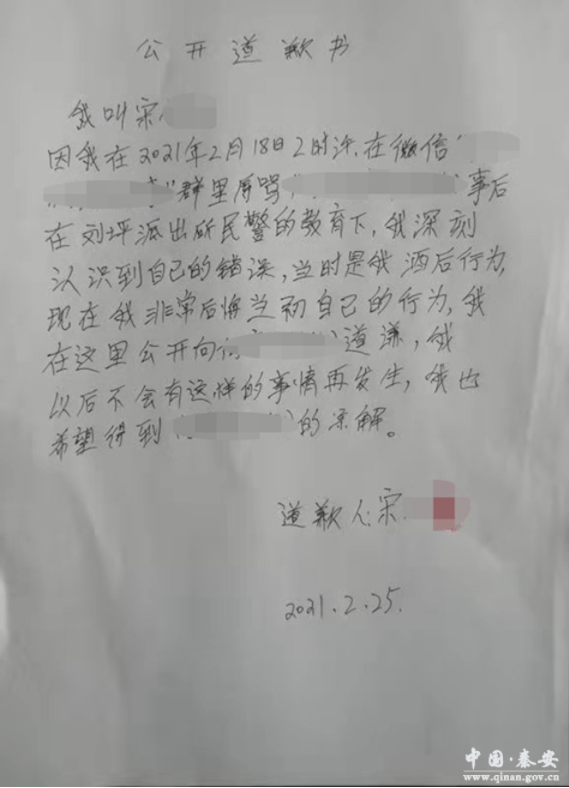 公开道歉书
我叫宋
因我在2021年2月18日2时许,在微信"
"群里辱骂 事后
在刘坪派出所民警的教育下,我深刻
认识到自己的错误,当时是我酒后行为,
现在我非常后悔当初自己的行为,我
在这里公开向 道谦,我
以后不会有这样的事情再发生,我也
希望得到 的谅解。
道歉人:宋
2021.2.25.
中国·秦安
www.qinan.gov.cn